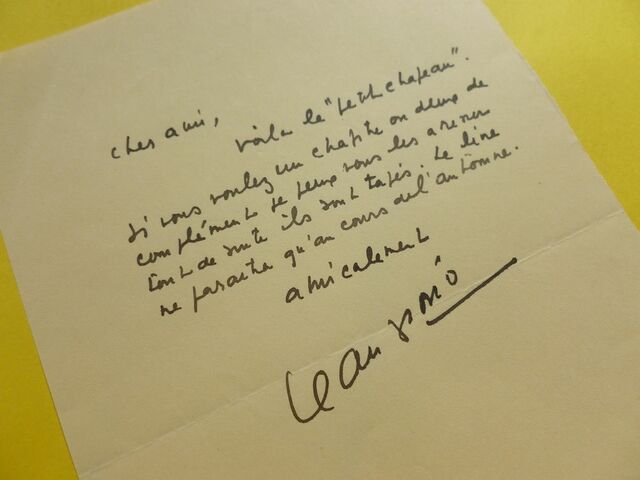 cher ami,
voila le "petit chapeau".
si vous voulez un chapitre ou deux de
complément je peux vous les amener
tout de suite ils sont tapés. Le livre
ne paraitra qu'au cours de l'automne.
amicalement
Jean Giono